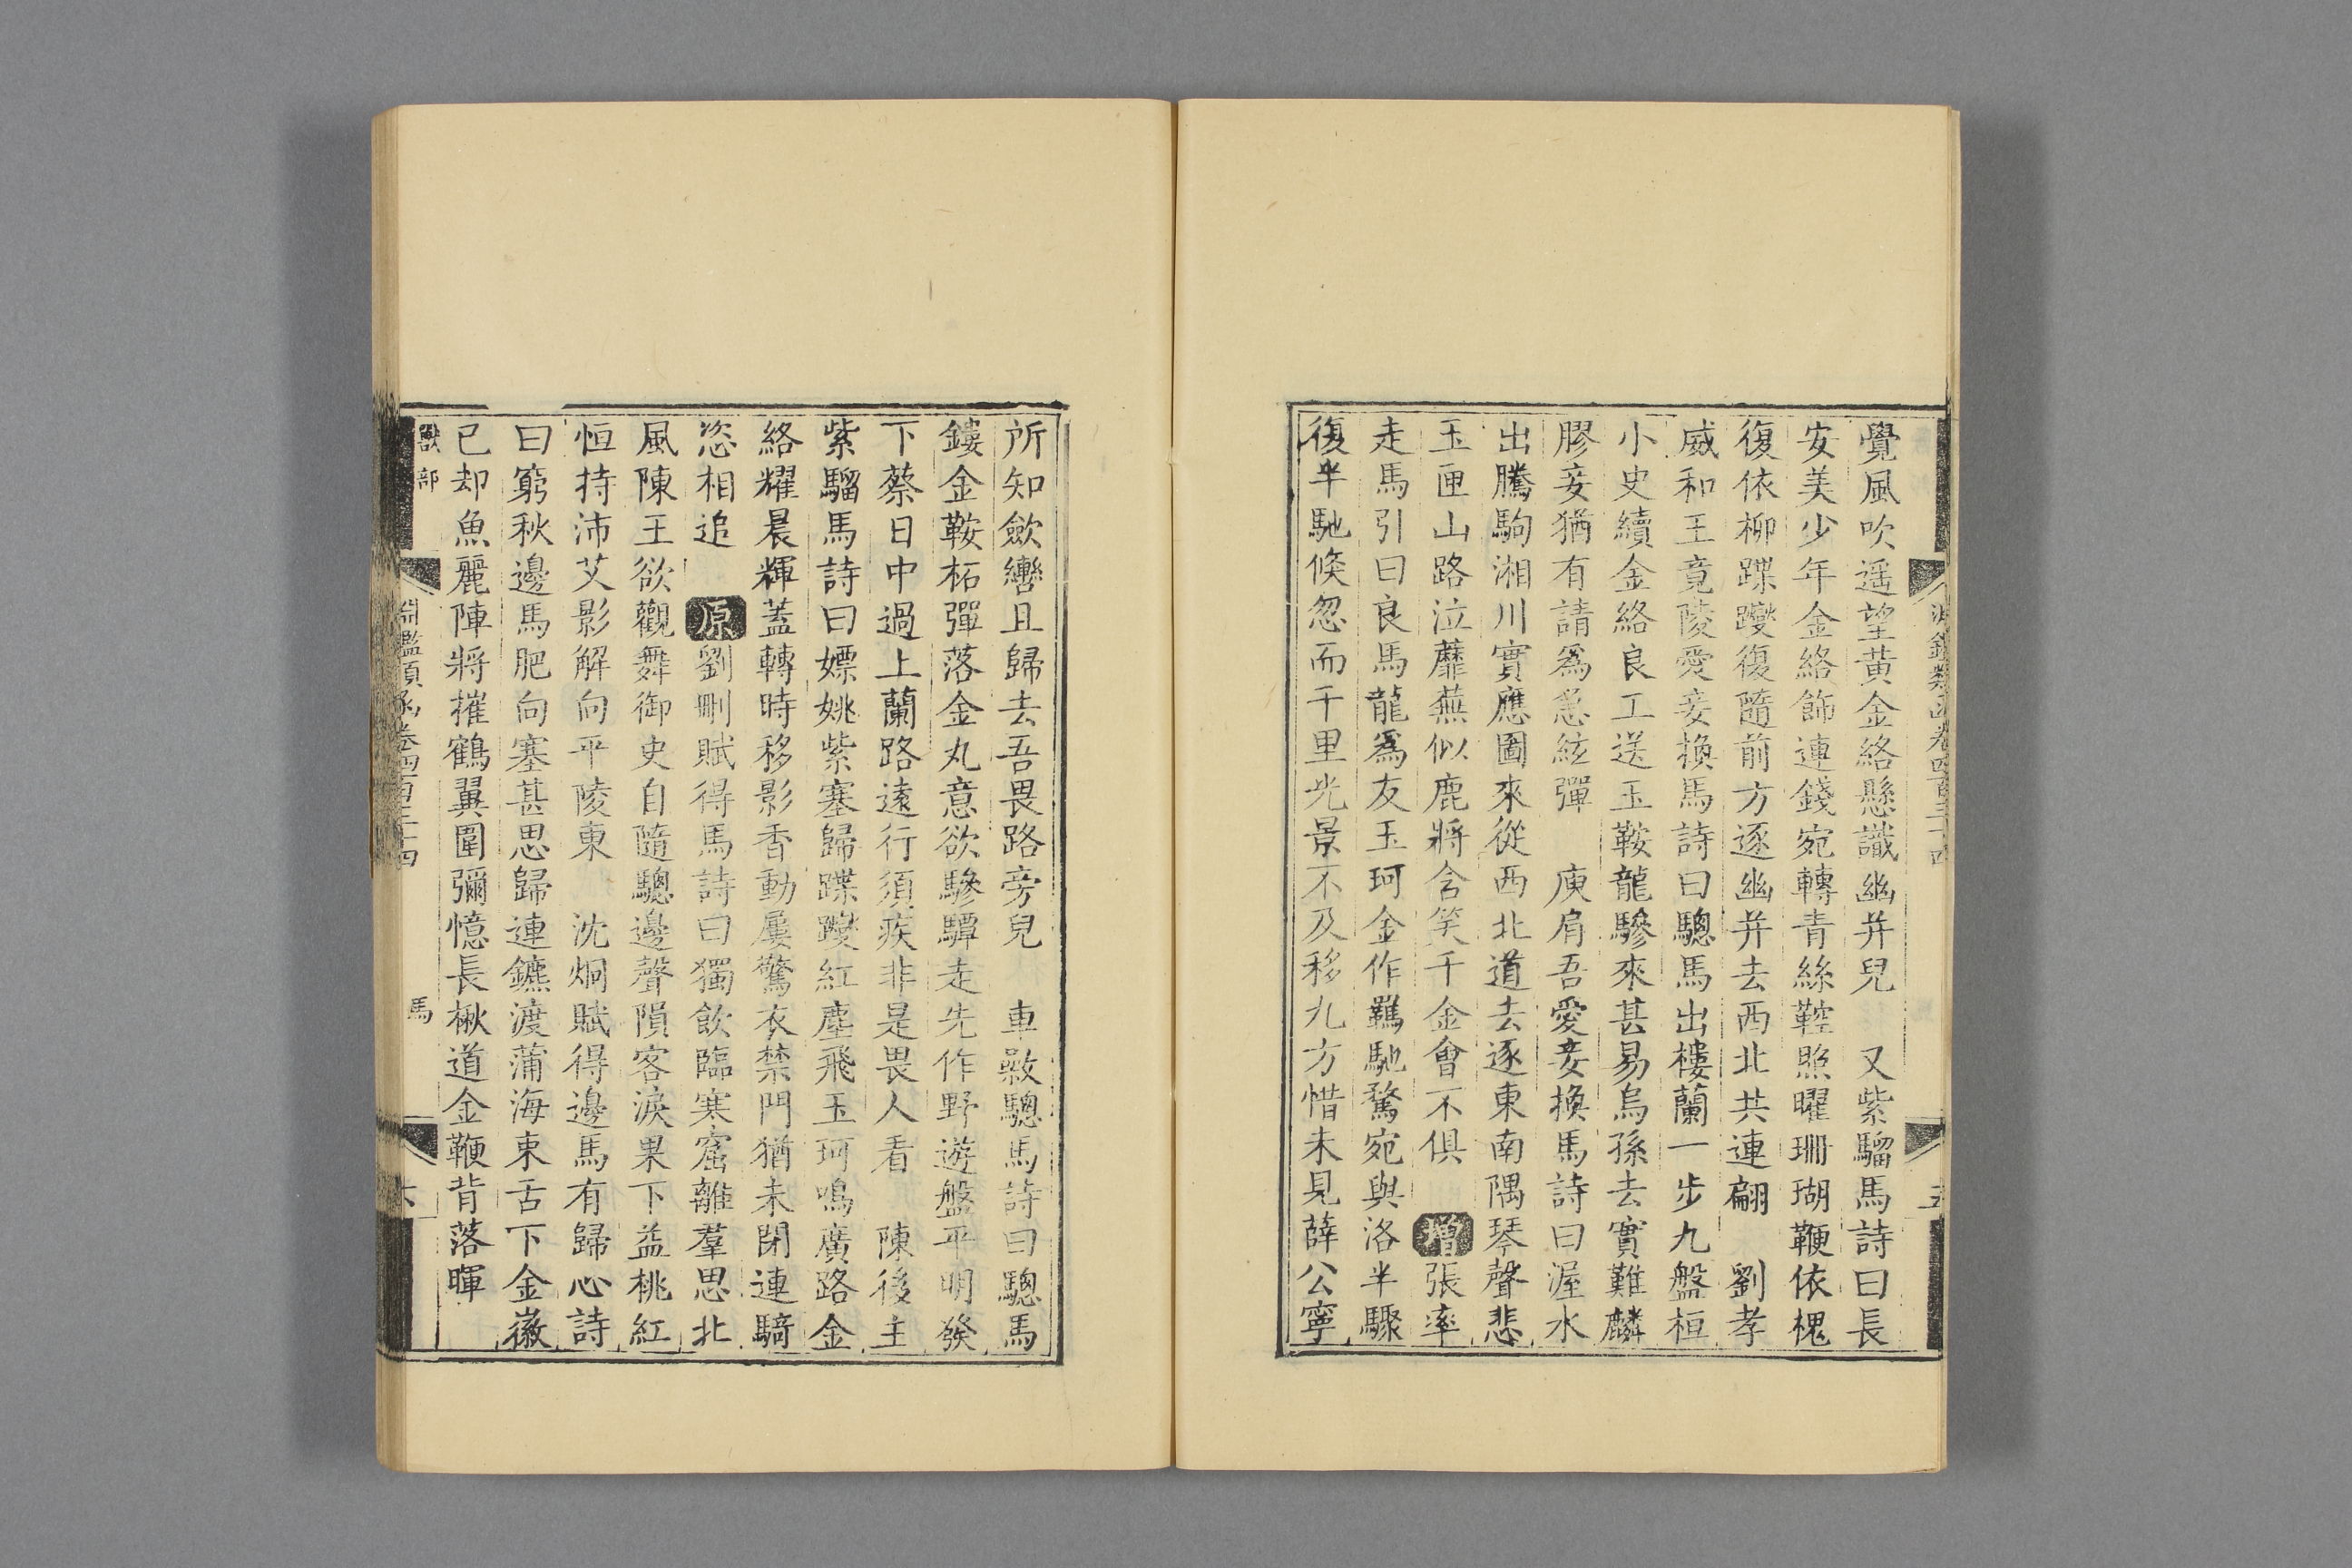 覺風吹遥望黃金絡懸識幽并兒　又紫騮馬詩曰長
安美少年金絡飾連錢宛轉青絲鞚照曜珊瑚鞭依槐
復依柳蹀躞復隨前方逐幽并去西北共連翩　劉孝
威和王竟陵愛妾換馬詩曰驄馬出樓蘭一步九盤桓
小史續金絡良工送玉鞍龍驂來甚易烏孫去實難麟
膠妾猶有請爲急絃彈　庾肩吾愛妾換馬詩曰渥水
出騰駒湘川實應圖來從西北道去逐東南隅琴聲悲
玉匣山路泣蘼蕪似鹿將含笑千金會不俱　增張率
走馬引曰良馬龍爲友玉珂金作羈馳騖宛與洛半驟
復半馳倏忽而千里光景不及移九方惜未見薛公寧
所知歛轡且歸去吾畏路旁兒　車𣤶驄馬詩曰驄馬
鏤金鞍柘彈落金丸意欲驂驔走先作野遊盤平明發
下蔡日中過上蘭路遠行須疾非是畏人看　陳後主
紫騮馬詩曰嫖姚紫塞歸蹀躞紅塵飛玉珂鳴廣路金
絡耀晨輝蓋轉時移影香動屢驚衣禁門猶未閉連騎
恣相追　原劉刪賦得馬詩曰獨飲臨寒窟離羣思北
風陳王欲觀舞御史自隨驄邊聲隕客淚果下益桃紅
恒持沛艾影解向平陵東　沈炯賦得邊馬有歸心詩
曰窮秋邊馬肥向塞甚思歸連鑣渡蒲海束舌下金徽
已却魚麗陣將摧鶴翼圍彌憶長楸道金鞭背落暉
獸部　淵鑑類函卷四百三十四　馬　六